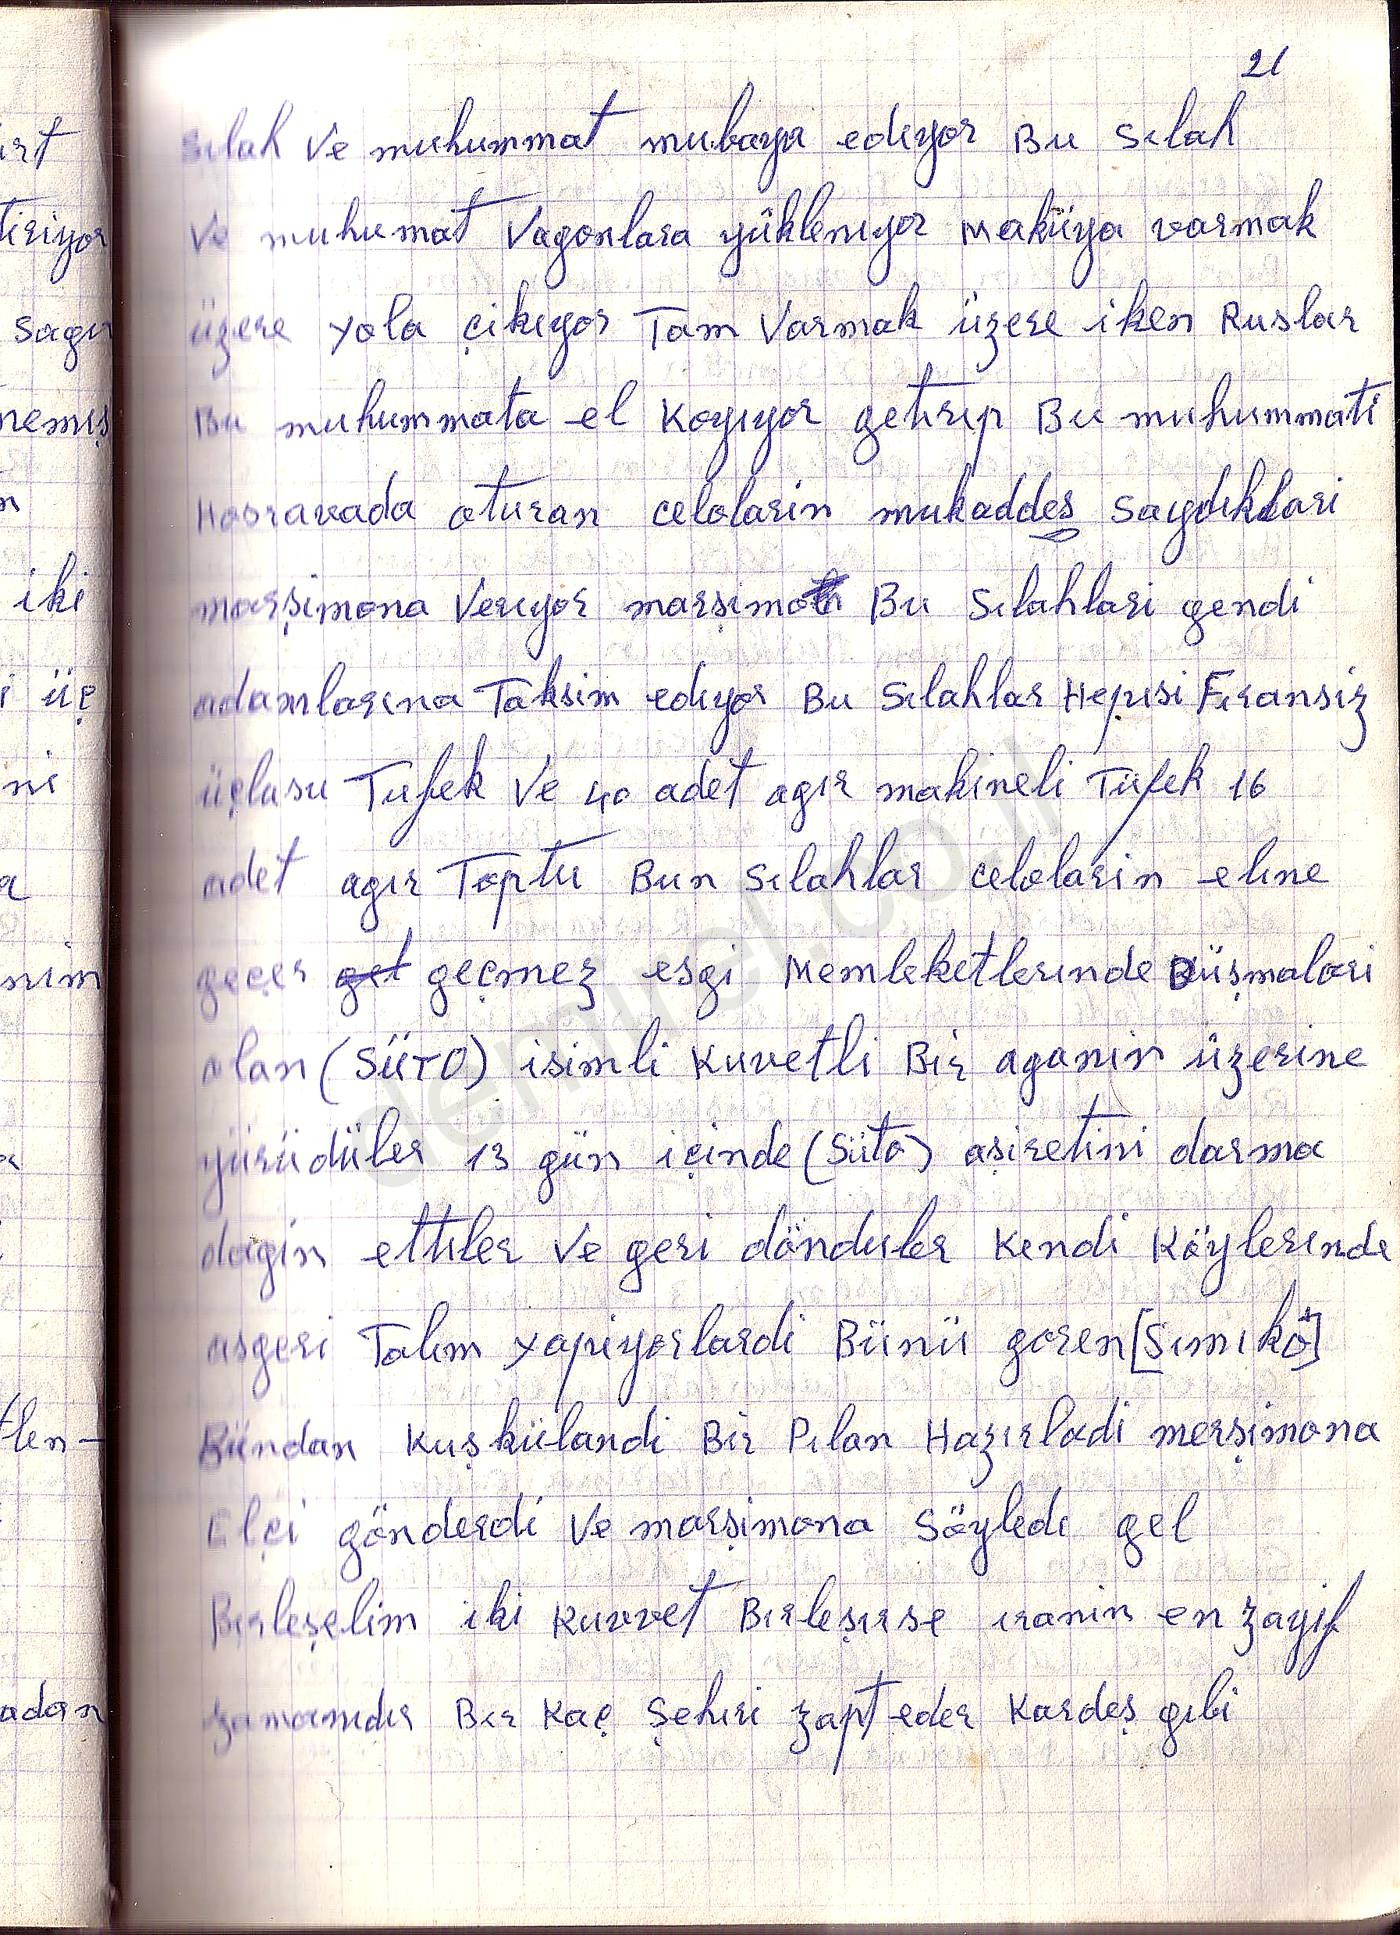 21
Sılah ve muhummat mubaya edıyor Bu Sılah
Ve muhumat Vagonlara yüklenıyor Maküya varmak
üzere yola çikıyor Tam Varmak üzere iken Ruslar
Bu muhummata el Koyıyor getırıp Bu muhummati
Hosravada oturan celolarin mukaddes Saydıkları
marşimona Verıyor marşimon Bu Sılahlari gendi
adamlarına Taksim edıyor Bu Sılahlar Hepısi Fıransiz
üçlusu Tufek Ve 40 adet agır makineli Tüfek 16
adet agır Toptu Bun Sılahlar celolarin elıne
geçer get geçmez esgi Memleketlerınde Düşmalari
olan (SÜTO) isimli Kuvetli Bir aganin üzerine
yürüdüler 13 gün içinde (Süto) aşiretini darma
dagin ettıler Ve geri dönduler Kendi Köylerınde
asgeri Talım yapiyorlardi Bünü goren [Sımıkö]
Bündan Kuşkülandi Bir Pılan Hazırladi merşimona
Elçi gönderdi Ve marşimona Söyledı gel
Bırleşelim iki Kuvvet Bırleşırse ıranin en zayıf
zamanıdır Bır Kaç Şehıri zapt eder Kardeş gıbi
ırt
tiriyor
sagı
nemış
n
iki
i üç
ni
a
nım
tlen-
adan
demirel.co.il